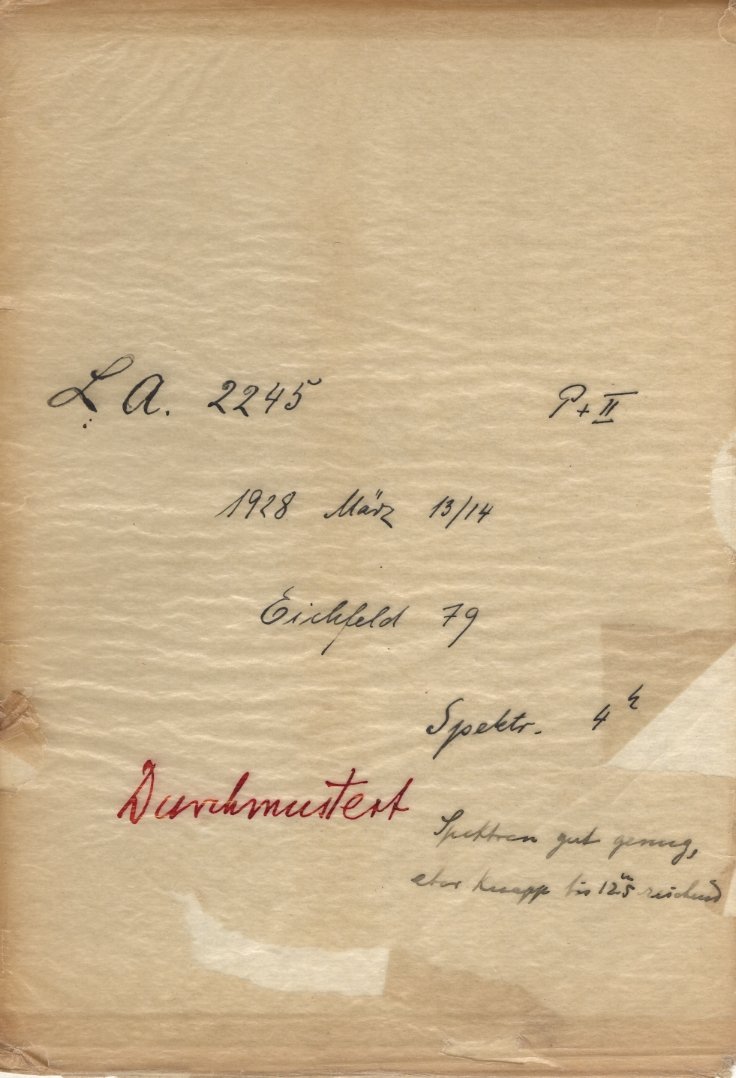 L. A. 2245 P + II
1928 März 13/14
Eichfeld 79
Spektr. 4ʰ
Durchmustert
Spektren gut genug,
aber knapp bis 12ᵐ5 reichend